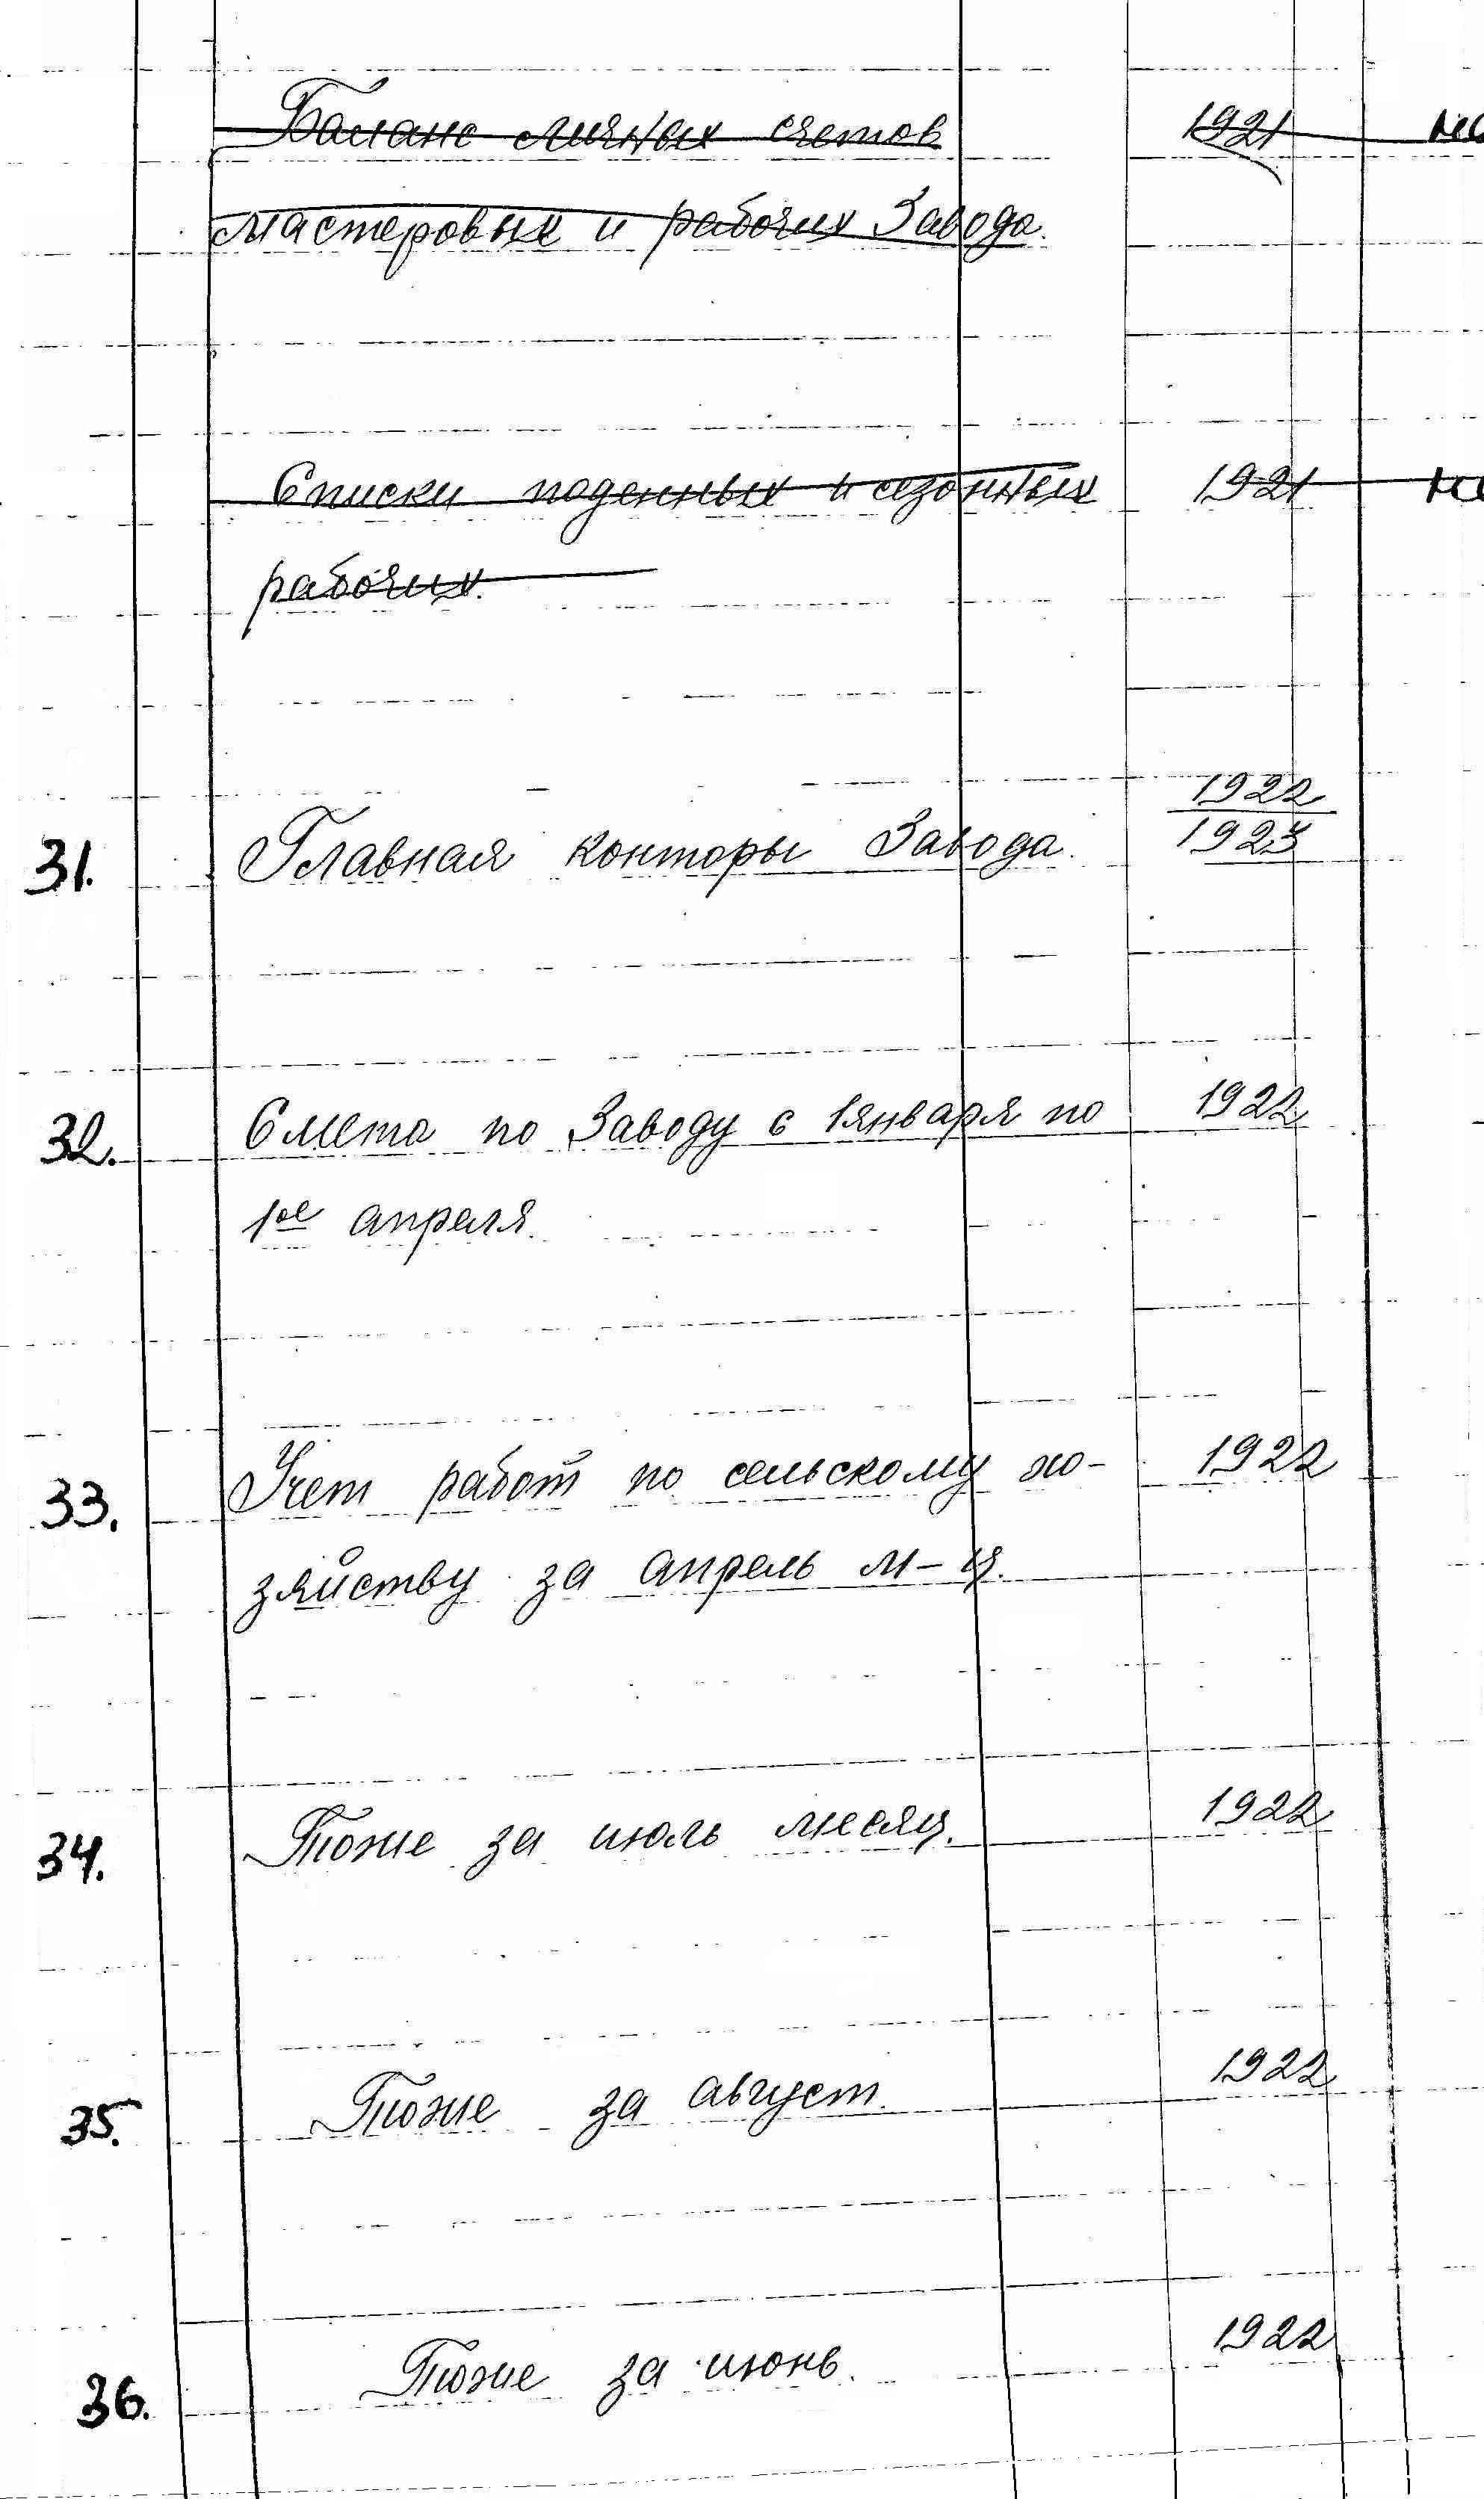 Баланс личных счетов 1921
мастеровых и рабочих Завода.
Списки поденных и сезонных 1921
рабочих.
1922
31. Главная конторы Завода. 1923
32. Смета по Заводу с 1 января по 1922
1ое апреля.
33. Учет работ по сельскому хо- 1922
зяйству за апрель м-ц.
34. Тоже за июль месяц. 1922
35. Тоже за август. 1922
36. Тоже за июнь. 1922